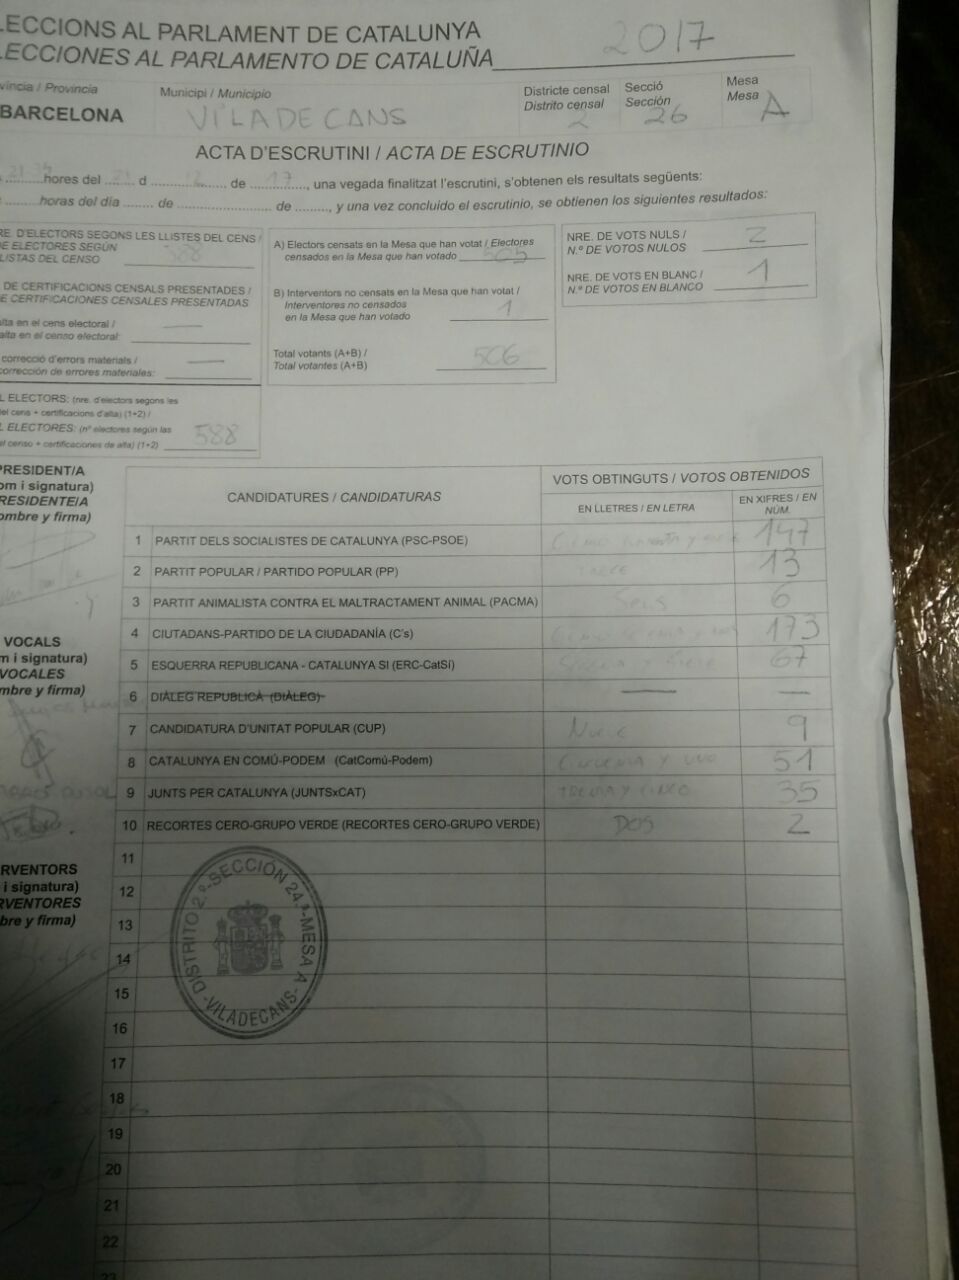 LECCIONS AL PARLAMENT DE CATALUNYA
LECCIONES AL PARLAMENTO DE CATALUÑA 2017
víncia / Provincia
BARCELONA
Municipi / Municipio
VILADECANS
Districte censal
Distrito censal
2
Secció
Sección
26
Mesa
Mesa
A
ACTA D'ESCRUTINI / ACTA DE ESCRUTINIO
hores del d 12 de 17, una vegada finalitzat l'escrutini, s'obtenen els resultats següents:
horas del día de de, y una vez concluido el escrutinio, se obtienen los siguientes resultados:
RE. D'ELECTORS SEGONS LES LLISTES DEL CENS /
DE ELECTORES SEGÚN
LISTAS DEL CENSO 588
DE CERTIFICACIONS CENSALS PRESENTADES /
E CERTIFICACIONES CENSALES PRESENTADAS
alta en el cens electoral /
alta en el censo electoral: —
correcció d'errors materials /
corrección de errores materiales: —
L ELECTORS: (nre. d'electors segons les
del cens + certificacions d'alta) (1+2) /
L ELECTORES: (nº electores según las
el censo + certificaciones de alta) (1+2) 588
A) Electors censats en la Mesa que han votat / Electores
censados en la Mesa que han votado 505
B) Interventors no censats en la Mesa que han votat /
Interventores no censados
en la Mesa que han votado 1
Total votants (A+B) /
Total votantes (A+B) 506
NRE. DE VOTS NULS /
N.º DE VOTOS NULOS 2
NRE. DE VOTS EN BLANC /
N.º DE VOTOS EN BLANCO 1
PRESIDENT/A
om i signatura)
RESIDENTE/A
ombre y firma)
VOCALS
m i signatura)
VOCALES
mbre y firma)
RVENTORS
i signatura)
RVENTORES
bre y firma)
CANDIDATURES / CANDIDATURAS
VOTS OBTINGUTS / VOTOS OBTENIDOS
EN LLETRES / EN LETRA
EN XIFRES / EN
NÚM.
1 PARTIT DELS SOCIALISTES DE CATALUNYA (PSC-PSOE) 147
2 PARTIT POPULAR / PARTIDO POPULAR (PP) TRECE 13
3 PARTIT ANIMALISTA CONTRA EL MALTRACTAMENT ANIMAL (PACMA) SEIS 6
4 CIUTADANS-PARTIDO DE LA CIUDADANÍA (C's) 173
5 ESQUERRA REPUBLICANA - CATALUNYA SI (ERC-CatSí) 67
6 DIÀLEG REPUBLICÀ (DIÀLEG) — —
7 CANDIDATURA D'UNITAT POPULAR (CUP) NUEVE 9
8 CATALUNYA EN COMÚ-PODEM (CatComú-Podem) CINCUENTA Y UNO 51
9 JUNTS PER CATALUNYA (JUNTSxCAT) TREINTA Y CINCO 35
10 RECORTES CERO-GRUPO VERDE (RECORTES CERO-GRUPO VERDE) DOS 2
11
12
13
14
15
16
17
18
19
20
21
22
23
DISTRITO 2.º-SECCIÓN 24.ª-MESA A
-VILADECANS-